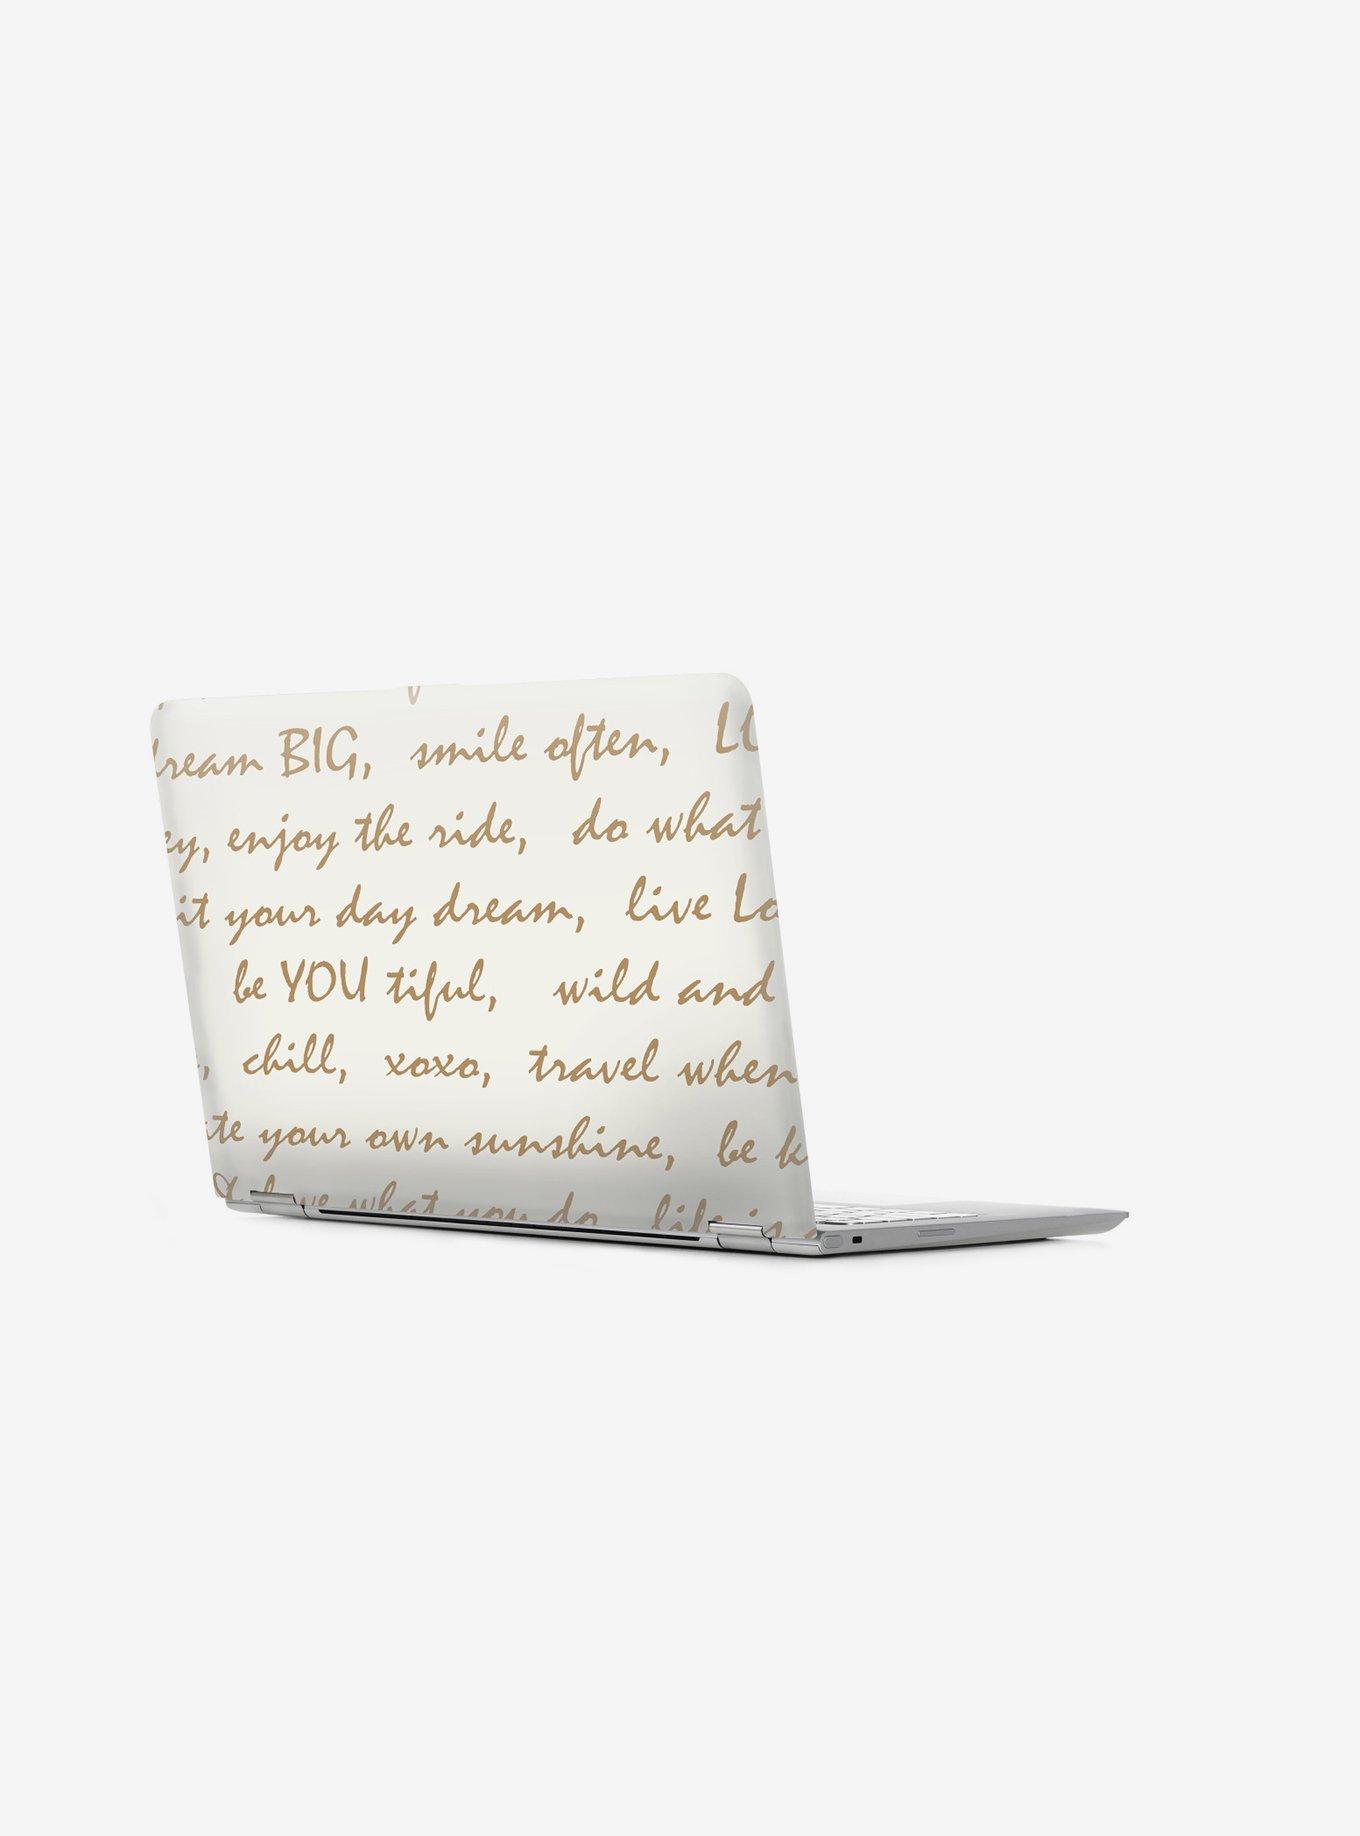 BIG, smile often,
enjoy the ride, do what
it your day dream, live
be YOU tiful, wild and
chill, xoxo, travel when
your own sunshine, be
what you do life is